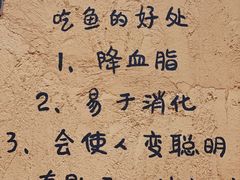 吃鱼的好处
1、降血脂
2、易于消化
3、会使人变聪明